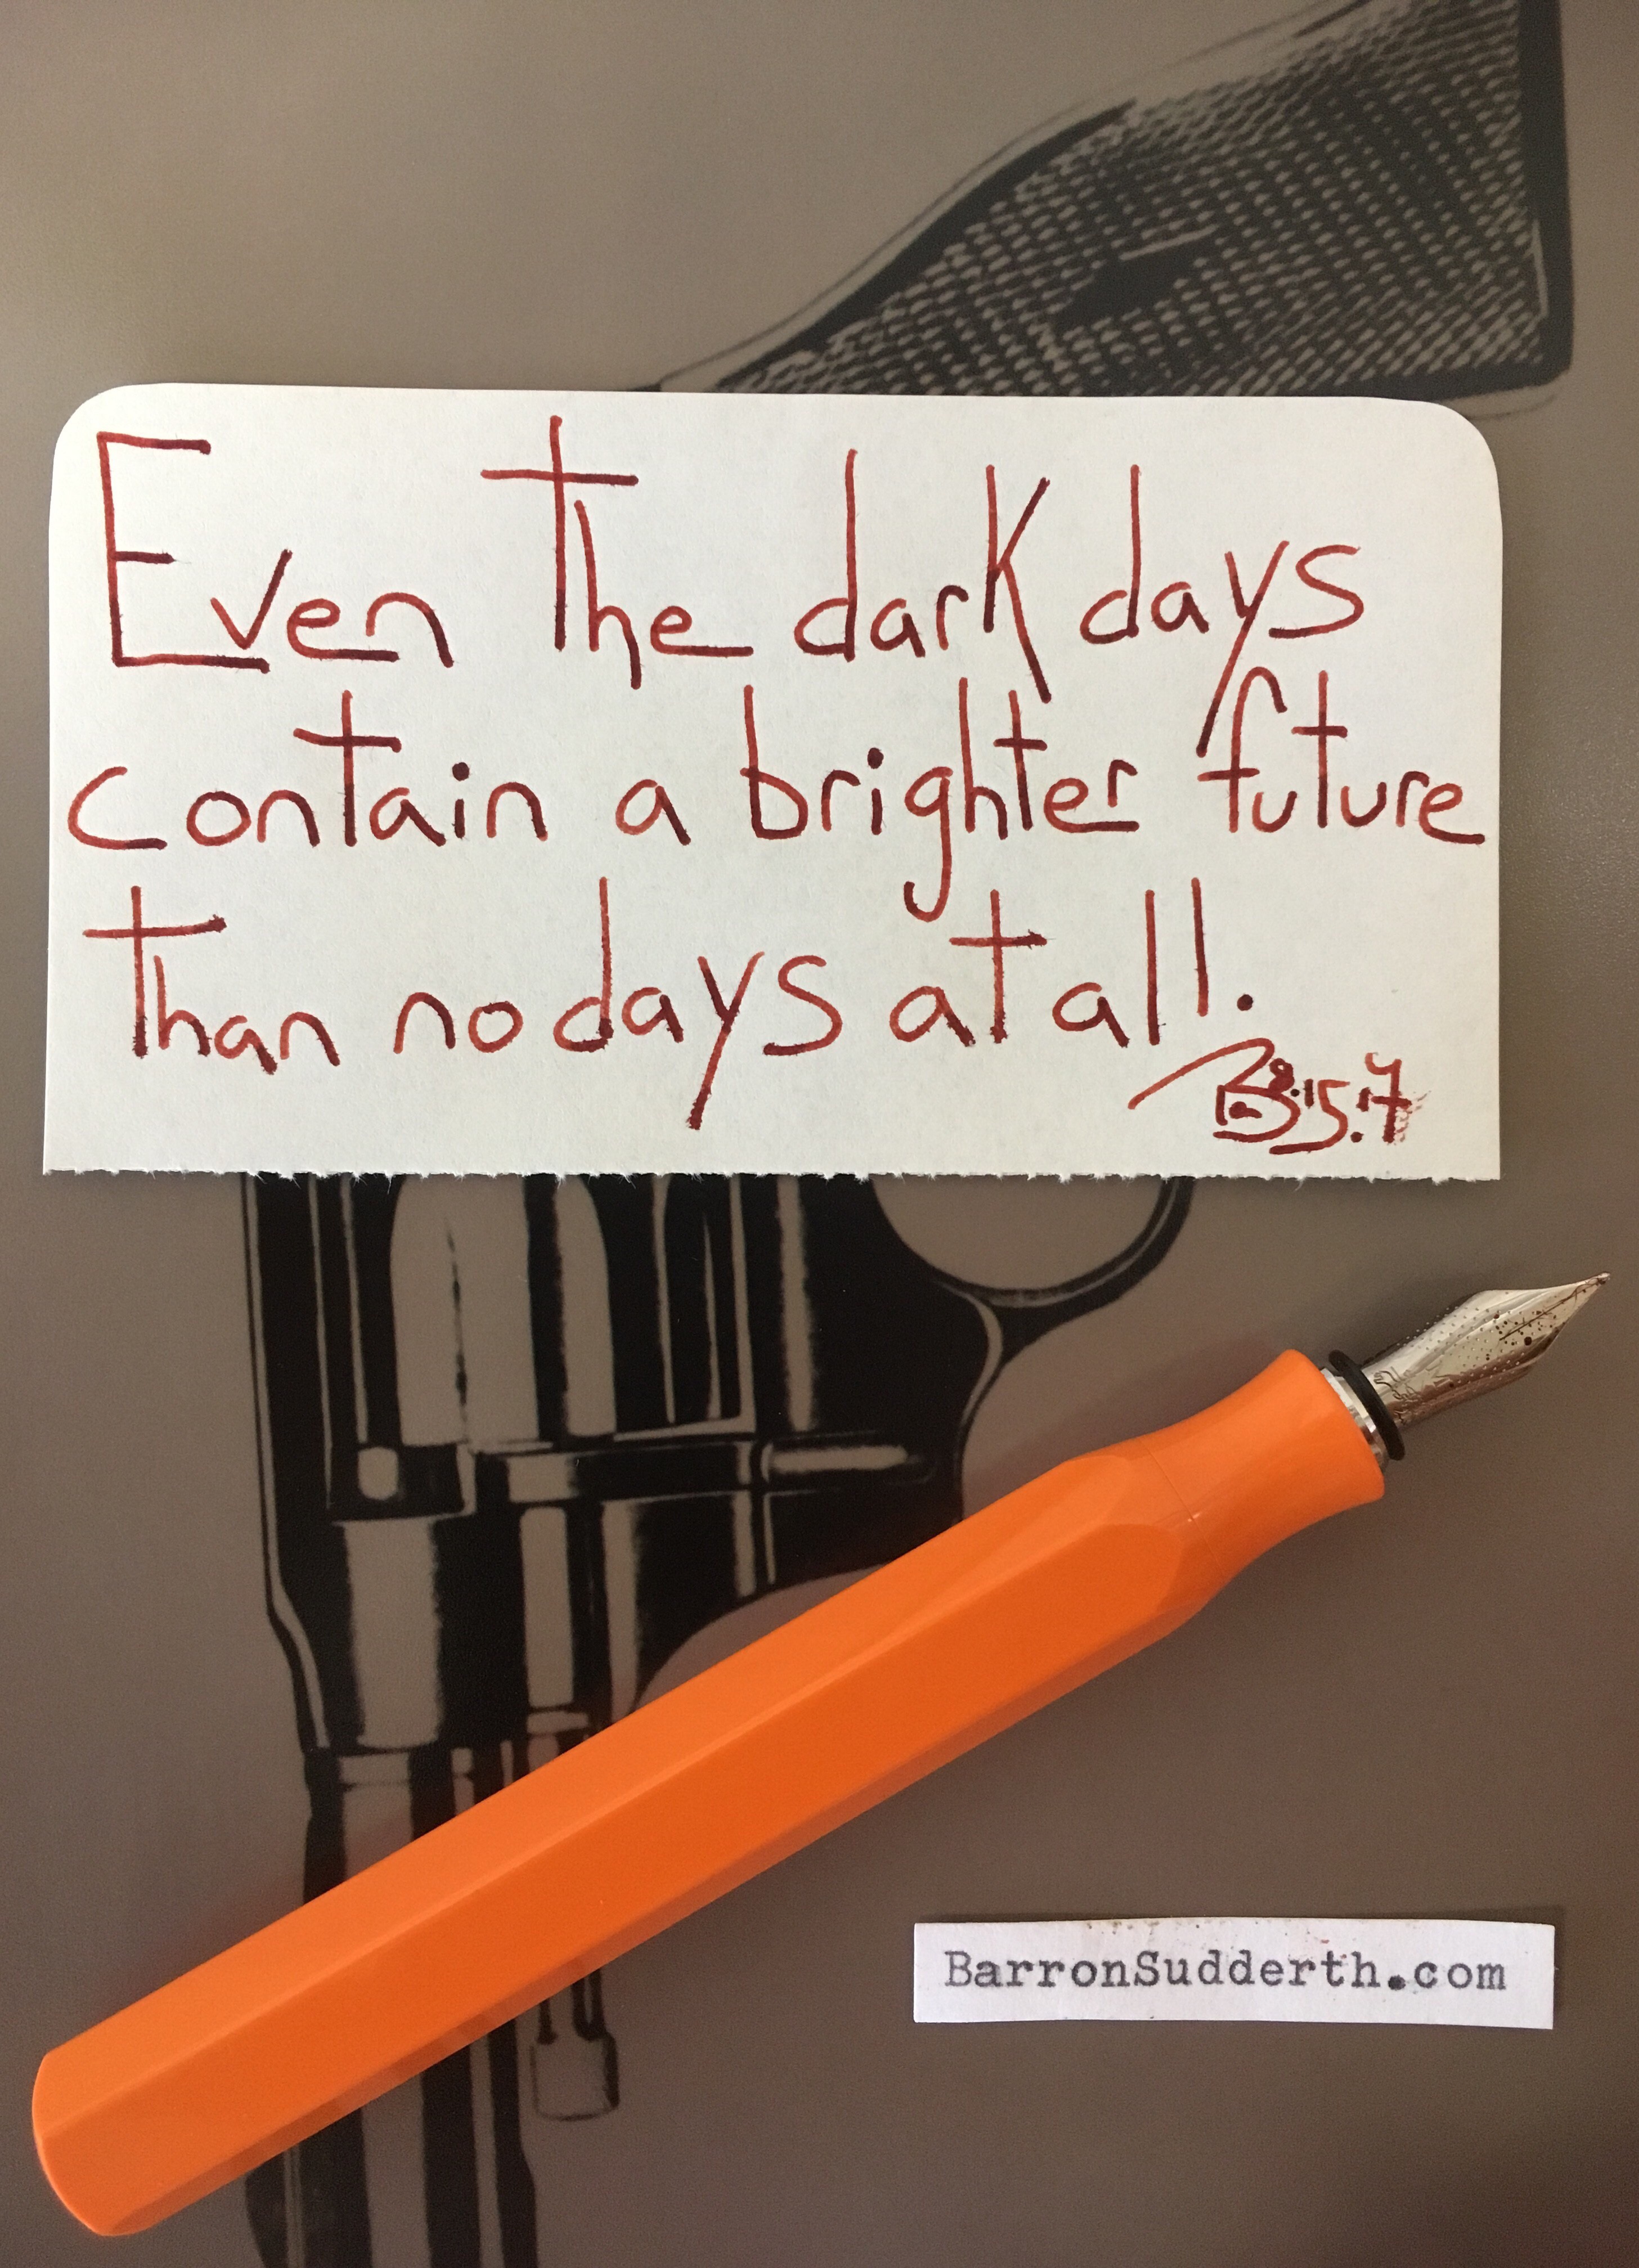 Even the dark days
contain a brighter future
than no days at all.
8.15.17
BarronSudderth.com